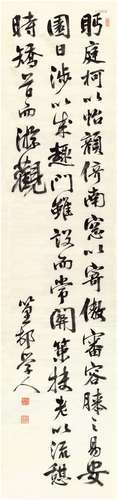 眄庭柯以怡顔倚南窓以寄傲審容膝之易安
園日涉以成趣門雖設而常關策扶老以流憩
時矯首而游觀
學人